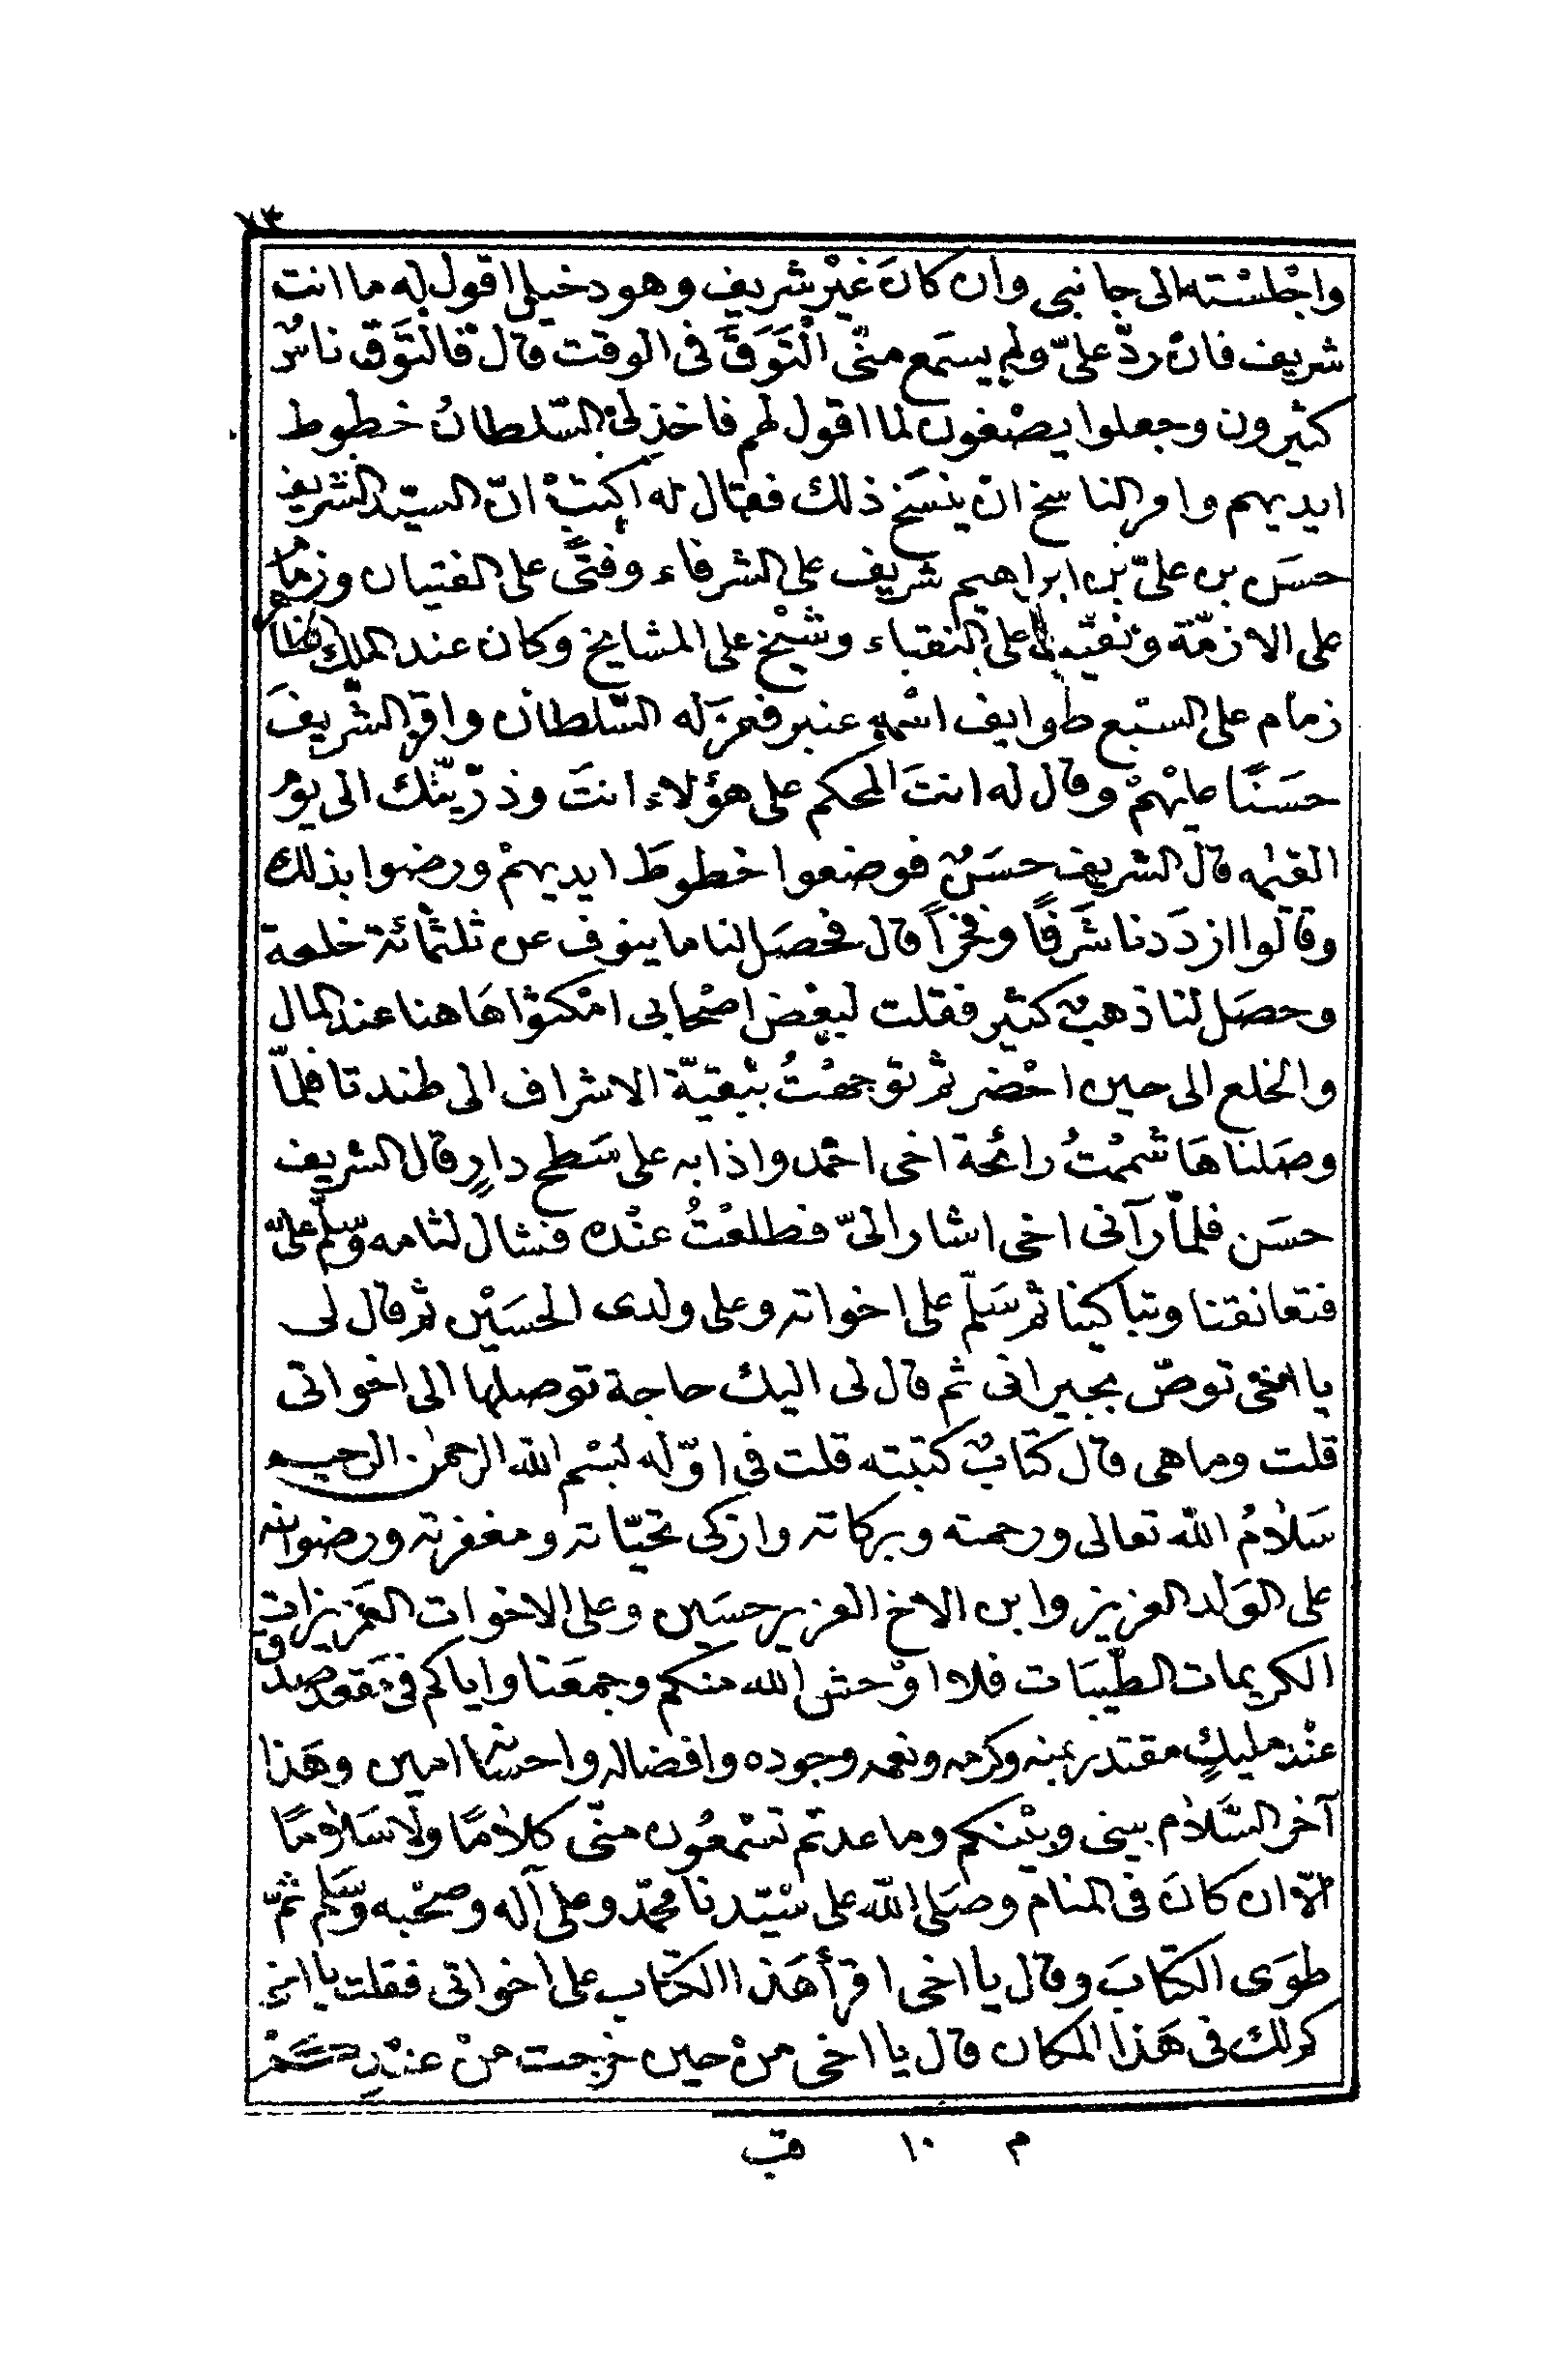 ٧٣
واجْلسْته الى جانبى وان كانَ غيْر شريف وهو دخيل اقول له ما انت
شريف فانْ ردّ علىّ ولم يسمَع منّى الْتَوَقَ فى الوقت قال فالتَوَق ناسٌ
كثيرون وجعلوا يصْغون لما اقول لهم فاخذ لى السّلطانُ خطوط
ايديهم وامر الناسخ انْ ينسَخ ذلك فقال له اكتبْ انّ السيّد الشريف
حسَن بن علىّ بن ابراهيم شريف على الشرفاء وفتًى على الفتيان وزمام
على الازمّة ونقيب على النقباء وشيْخ على المشايخ وكان عند الملك
زمام على السّبع طوايف اسْمه عنبر فعزَله السّلطان واقرّ الشّريفَ
حسَنًا عليْهمْ وقال له انتَ المحكم على هؤلاء انتَ وذرّيّتك الى يوم
القيٰمه قال الشريف حسَنٌ فوضعوا خطوطَ ايديهمْ ورضوا بذلك
وقالوا ازدَدنا شَرفًا وفخراً قال فحصَل لنا ما ينوف عن ثلثمائة خلعة
وحصَل لنا ذهبٌ كثير فقلت لبعْض اصْحابى امْكثوا هَاهنا عند المال
والخلع الى حين احْضر ثم توجهْتُ ببْقيّة الاشراف الى طندتا فلمّا
وصَلناهَا شممْتُ رائحة اخى احْمد واذا به على سَطح دارٍ قال الشريف
حسَن فلمّا رآنى اخى اشار الىّ فطلعْتُ عنْده فشال لثامه وسّلم علىّ
فتعانقنا وتباكينا ثم سَلّم على اخواته وعلى ولدى الحسَيْن ثم قال لى
يا اخى توصّ بجيرانى ثم قال لى اليك حاجة توصلها الى اخواتى
قلت وما هى قال كتابٌ كتبته قلت فى اوّله بسْم الله الرحمٰن الرحيم
سَلامُ الله تعالى ورحمته وبركاته وازكى تحيّاته ومغفرته ورضوانه
على الوَلد العزيز وابن الاخ العزيز حسَين وعلى الاخوات العَزيزات
الكريمات الطّيبَات فلا اوْحش الله منكم وجمعَنا واياكم فى مَقعد صدق
عنْد مليكٍ مقتدر بمنه وكرمه ونعمه وجوده وافضاله واحسانه امين وهَذا
آخر السَّلام بينى وبيْنكم وما عدتم تسْمعُون منّى كلامًا ولا سَلامًا
الّا ان كانَ فى المنام وصَلى الله على سَيّدنا محمّد وعلى آله وصحْبه وسّلم ثمّ
طوَى الكتابَ وقال يا اخى اقرأ هَذا الكتاب على اخواتى فقلت يا اخى
كم لك فى هَذا المكان قال يا اخى منْ حين خرجت منْ عنْدكمْ
م ١٠ قب